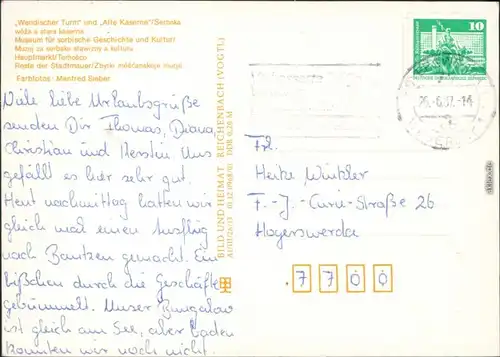 „Wendischer Turm" und „Alte Kaserne"/Serbska
wěža a stara kaserna
Museum für sorbische Geschichte und Kultur/
Muzej za serbske stawizny a kulturu
Hauptmarkt/Torhošćo
Reste der Stadtmauer/Zbytki měšćanskeje murje
Farbfotos: Manfred Bieber
Viele liebe Urlaubsgrüße
senden Dir Thomas, Diana,
Christian und Kerstin. Uns
gefällt es hier sehr gut.
Heut nachmittag hatten wir
gleich mal einen Ausflug
nach Bautzen gemacht. Ein
bißchen durch die Geschäfte
gebummelt. Unser Bungalow
ist gleich am See, aber baden
konnten wir noch nicht.
BILD UND HEIMAT REICHENBACH (VOGTL)
DDR 0,20 M
10
Frl.
Heike Winkler
F.-J.-Curie-Straße 26
Hoyerswerda
7 7 0 0